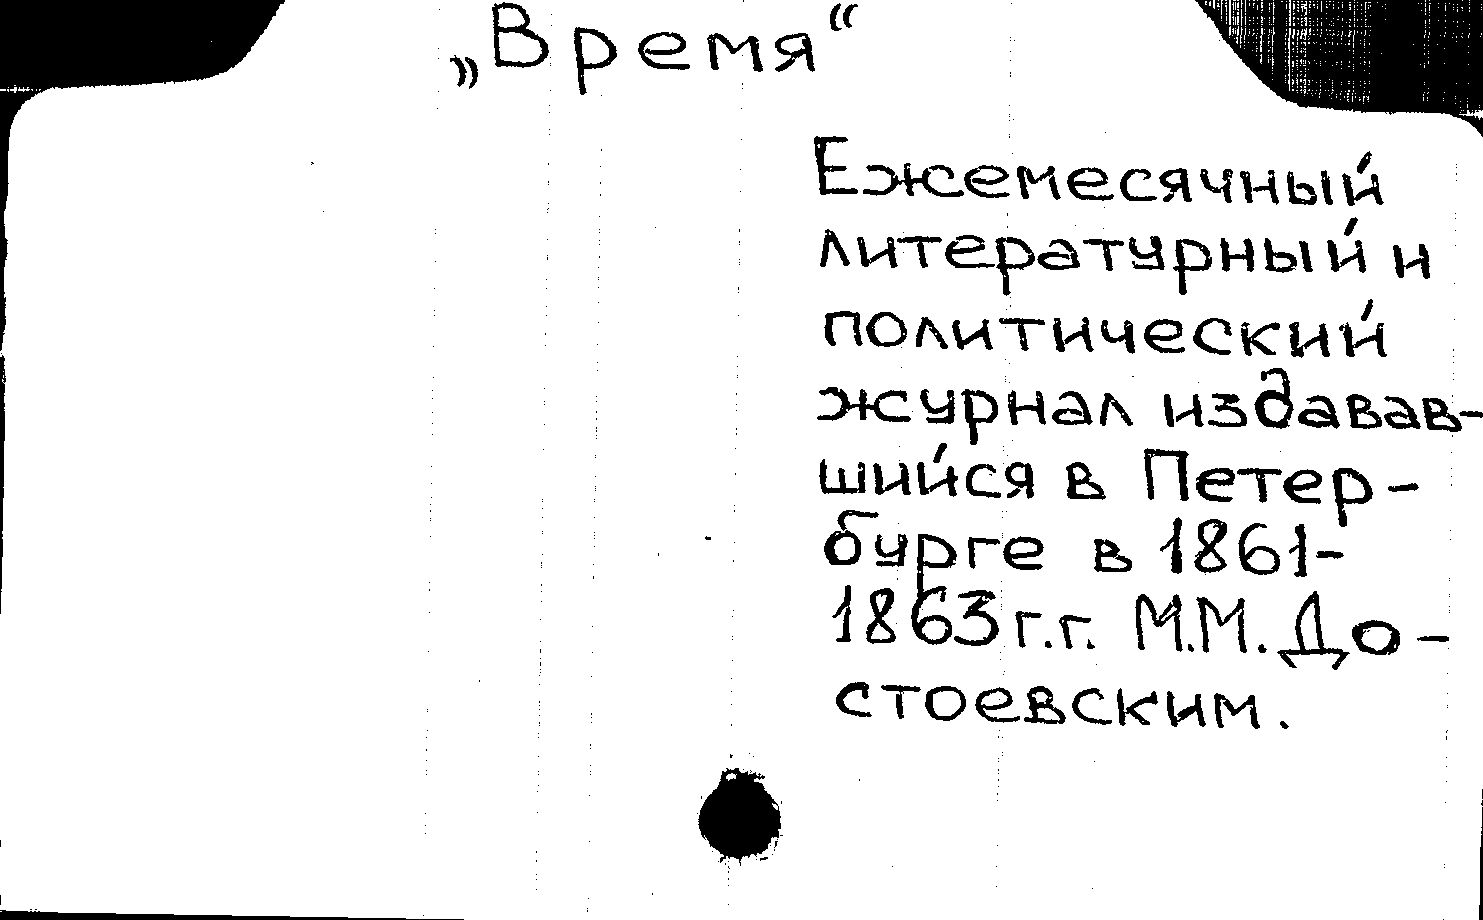 „Время“
Ежемесячный
литературный и
политический
журнал издавав-
шийся в Петер-
бурге в 1861-
1863 г.г. М.М. До-
стоевским.